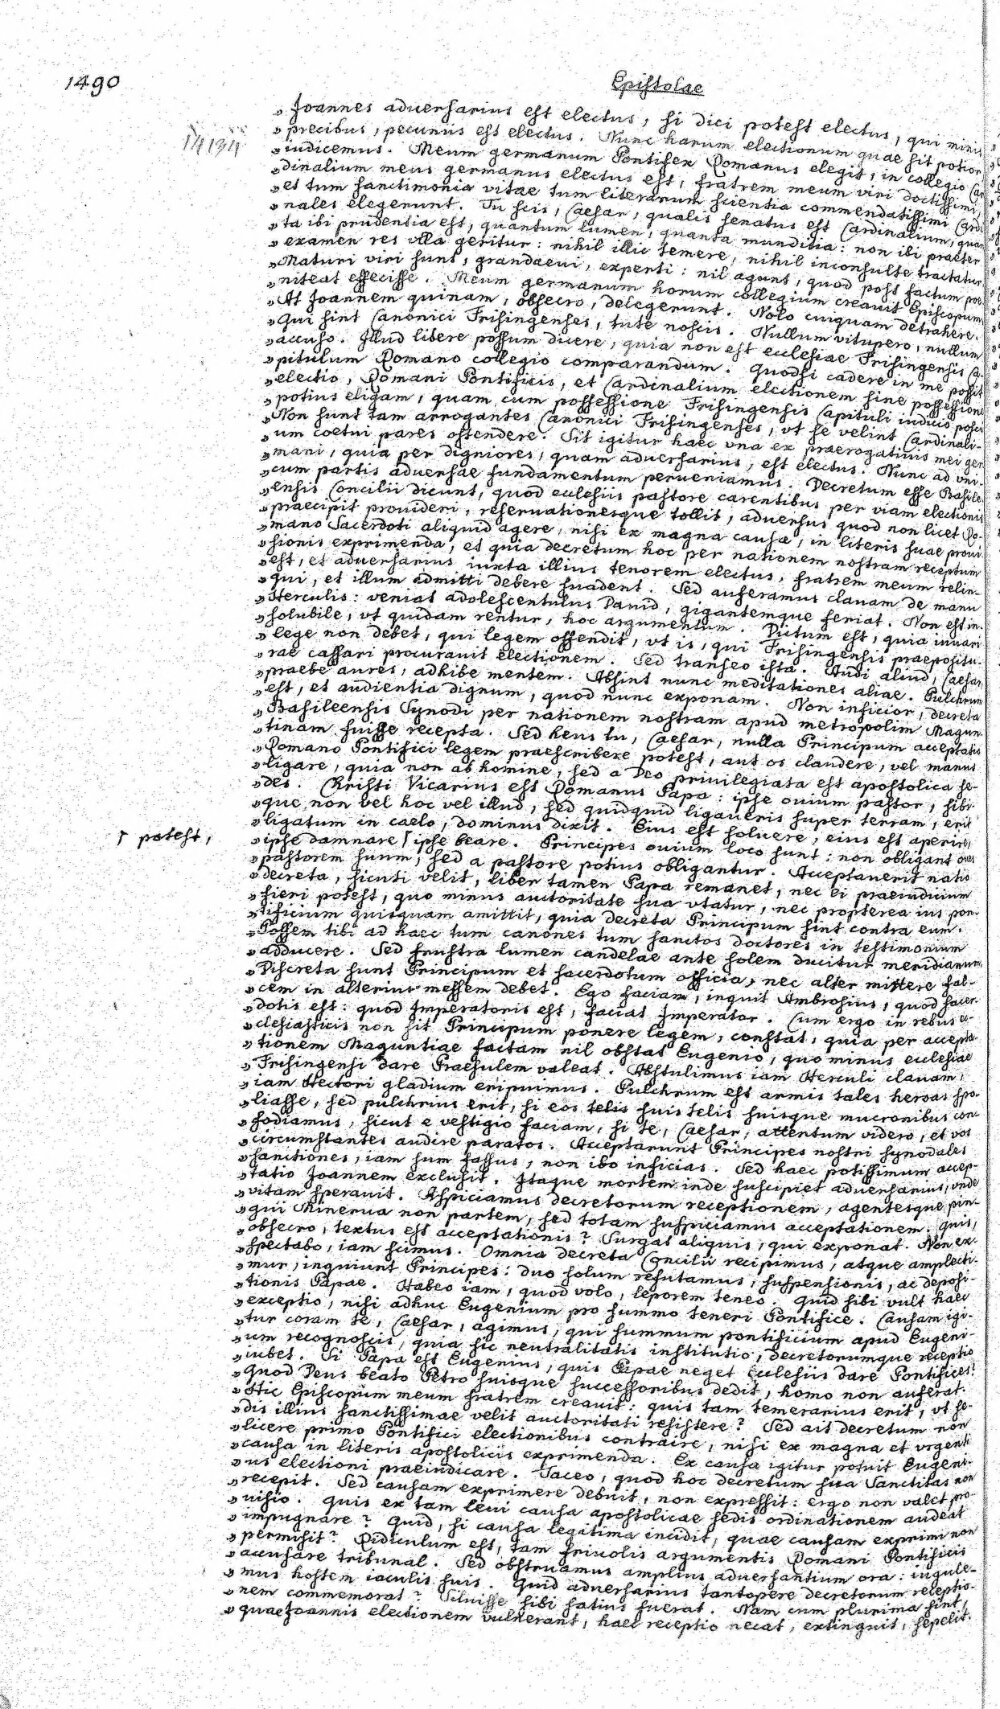 1490
Epistolae
» Joannes adversarius est electus, si dici potest electus, qui minis
» precibus, pecuniis est electus. Nunc harum electionum quae sit potior
» iudicemus. Meum germanum Pontifex Romanus elegit, in collegio Car
» dinalium meus germanus electus est, fratrem meum viri doctissimi,
» et tum sanctimonia vitae tum literarum scientia commendatissimi Cardi
» nales elegerunt. Tu scis, Caesar, qualis senatus est Cardinalium, quan
» ta ibi prudentia est, quantum lumen, quanta munditia: non ibi praeter
» examen res vlla geritur: nihil illic temere, nihil inconsulte tractatur.
» Maturi viri sunt, grandaevi, experti: nil agunt, quod post factum poe
» niteat effecisse. Meum germanum horum collegium creauit Episcopum.
» At Joannem quinam, obsecro, delegerunt. Nolo cuiquam detrahere.
» Qui sint Canonici Frisingenses, tute noscis. Nullum vitupero, nullum
» accuso. Illud libere possum dicere, quia non est ecclesiae Frisingensis Ca
» pitulum Romano collegio comparandum. Quodsi cadere in me possit
» electio, Romani Pontificis, et Cardinalium elctionem sine possessione
» potius eligam, quam cum possessione Frisingensis Capituli iudicio posci
» Non sunt tam arrogantes Canonici Frisingenses, vt se velint Cardinali-
» um coetui pares ostendere. Sit igitur haec vna ex praerogatiuis mei ger
» mani, quia per digniores, quam adversarius, est electus. Nunc ad vni-
» cum partis adversae fundamentum perveniamus. Decretum esse Basile
» ensis Concilii dicunt, quod ecclesiis pastore carentibus per viam electionis
» praecipit prouideri, reseruationesque tollit, adversus quod non licet Ro-
» mano Sacerdoti aliquid agere, nisi ex magna causa, in literis suae proui
» sionis exprimenda, et quia decretum hoc per nationem nostram receptum
» est, et adversarius iuxta illius tenorem electus, fratrem meum relin-
» qui, et illum admitti debere suadent. Sed auferamus clauam de manu
» Herculis: veniat adolescentulus Dauid, gigantemque feriat. Non est in-
» solubile, vt quidam rentur, hoc argumentum. Dictum est, quia iuuari
» lege non debet, qui legem offendit, vt is, qui Frisingensis praepositu-
» rae cassari procurauit electionem. Sed transeo ista. Audi aliud, Caesar,
» praebe aures, adhibe mentem. Absint nunc meditationes aliae. Pulchrum
» est, et audientia dignum, quod nunc exponam. Non inficior, decreta
» Basileensis Synodi per nationem nostram apud metropolim Magun-
» tinam fuisse recepta. Sed heus tu, Caesar, nulla Principum acceptatio
» Romano Pontifici legem praescribere potest, aut os claudere, vel manus
» ligare, quia non ab homine, sed a Deo privilegiata est apostolica se-
» des. Christi Vicarius est Romanus Papa: ipse ouium pastor, sibi-
» que, non vel hoc vel illud, sed quidquid ligaueris super terram, erit
» ligatum in caelo, dominus dixit. Eius est soluere, eius est aperire,
» ipse damnare ⌈ ipse beare. Principes ouium loco sunt: non obligant oues
⌈ potest,
» pastorem suum, sed a pastore potius obligantur. Acceptauerit natio
» decreta, sicuti velit, liber tamen Papa remanet, nec ei praeiudicium
» fieri potest, quo minus auctoritate sua vtatur, nec propterea ius pon-
» tificium quisquam amittit, quia decreta Principum sint contra eum.
» Possem tibi ad haec tum canones tum sanctos doctores in testimonium
» adducere. Sed frustra lumen candelae ante solem ducitur meridianum.
» Discreta sunt Principum et sacerdotum officia, nec alter mittere fal-
» cem in alterius messem debet. Ego faciam, inquit Ambrosius, quod sacer-
» dotis est: quod Imperatoris est, faciat Imperator. Cum ergo in rebus ec-
» clesiasticis non sit Principum ponere legem, constat, quia per accepta-
» tionem Maguntiae factam nil obstat Eugenio, quo minus ecclesiae
» Frisingensi dare Praesulem valeat. Abstulimus iam Herculi clauam,
» iam Hectori gladium eripuimus. Pulchrum est armis tales heroas spo-
» liasse, sed pulchrius erit, si eos telis suis telis suisque mucronibus con-
» fodiamus, sicut e vestigio faciam, si te, Caesar, attentum videro, et vos
» circumstantes audire paratos. Acceptarunt Principes nostri synodales
» sanctiones, iam sum fassus, non ibo inficias. Sed haec potissimum accep-
» tatio Joannem exclusit. Itaque mortem inde suscipiet adversarius, vnde
» vitam sperauit. Aspiciamus decretorum receptionem, agentesque pin-
» gui Minerva non partem, sed totam suspiciamus acceptationem. Quis,
» obsecro, textus est acceptationis? Surgat aliquis, qui exponat. Non ex-
» spectabo, iam scimus. Omnia decreta Concilii recipimus, atque amplecti-
» mur, inquiunt Principes: duo solum refutamus, suspensionis, ac deposi-
» tionis Papae. Habeo iam, quod volo, leporem teneo. Quid sibi vult haec
» exceptio, nisi adhuc Eugenium pro summo teneri Pontifice. Causam igi-
» tur coram te, Caesar, agimus, qui summum pontificium apud Eugeni-
» um recognoscis, quia sic neutralitatis institutio, decretorumque receptio
» iubet. Si Papa est Eugenius, quis Papae neget Ecclesiis dare Pontifices?
» Quod Deus beato Petro suisque successoribus dedit, homo non auferat.
» Hic Episcopum meum fratrem creauit: quis tam temerarius erit, vt se-
» dis illius sanctissimae velit auctoritati resistere? Sed ait decretum non
» licere primo Pontifici electionibus contraire, nisi ex magna et vrgenti
» causa in literis apostolicis exprimenda. Ex causa igitur potuit Eugeni-
» us electioni praeiudicare. Taceo, quod hoc decretum sua Sanctitas non
» recepit. Sed causam exprimere debuit, non expressit: ergo non valet pro-
» uisio. Quis ex tam leui causa apostolicae sedis ordinationem audeat
» impugnare? Quid, si causa legitima incidit, quae causam exprimi non
» permisit? Ridiculum est, tam friuolis argumentis Romani Pontificis
» accusare tribunal. Sed obstruamus amplius adversantium ora: iugule-
» mus hostem iaculis suis. Quid adversarius tantopere decretorum receptio-
» nem commemorat? Siluisse sibi satius fuerat. Nam cum plurima sint,
» quae Joannis electionem vulnerant, haec receptio necat, extinguit, sepelit.